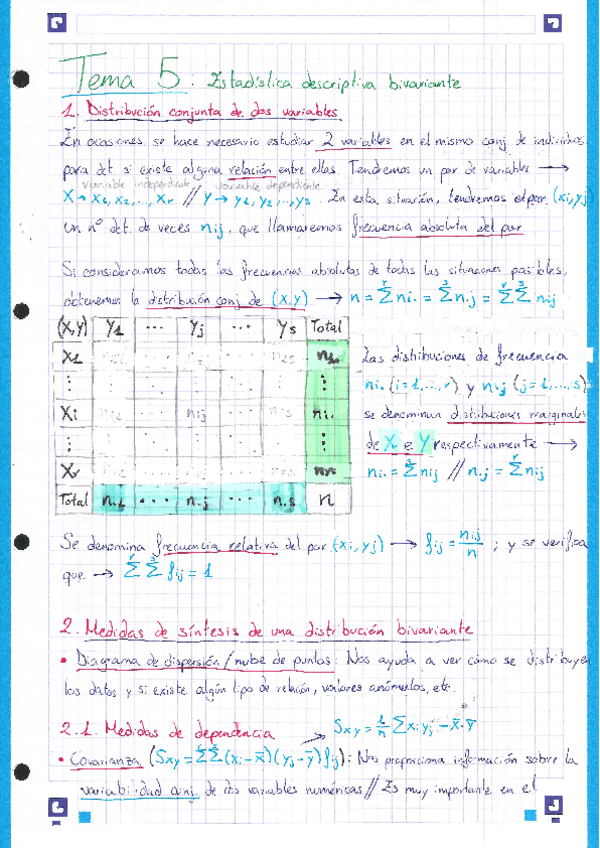 Tema 5: Estadística descriptiva bivariante
1. Distribución conjunta de dos variables
En ocasiones, se hace necesario estudiar 2 variables en el mismo conj. de individuos
para det. si existe alguna relación entre ellas. Tendremos un par de variables →
variable independiente variable dependiente
X → x1, x2, ..., xr // Y → y1, y2, ..., ys. En esta situación, tendremos el par (xi, yj)
un nº det. de veces nij, que llamaremos frecuencia absoluta del par
Si consideramos todas las frecuencias absolutas de todas las situaciones posibles,
obtenemos la distribución conj. de (x,y) → n = Σ ni. = Σ n.j = Σ Σ nij
(X,Y) Y1 ... Yj ... Ys Total
X1 n1.
Las distribuciones de frecuencia
ni. (i=1,...,r) y n.j (j=1,...,s)
Xi nij ni.
se denominan distribuciones marginales
de X e Y respectivamente →
Xr nr.
ni. = Σ nij // n.j = Σ nij
Total n.1 ... n.j ... n.s n
Se denomina frecuencia relativa del par (xi, yj) → fij = nij/n ; y se verifica
que → Σ Σ fij = 1
2. Medidas de síntesis de una distribución bivariante
• Diagrama de dispersión / nube de puntos: Nos ayuda a ver cómo se distribuyen
los datos y si existe algún tipo de relación, valores anómalos, etc.
2.1. Medidas de dependencia
Sxy = 1/n Σ xi yj - x̄·ȳ
• Covarianza (Sxy = Σ Σ (xi - x̄)(yj - ȳ) fij): Nos proporciona información sobre la
variabilidad conj. de dos variables numéricas // Es muy importante en el